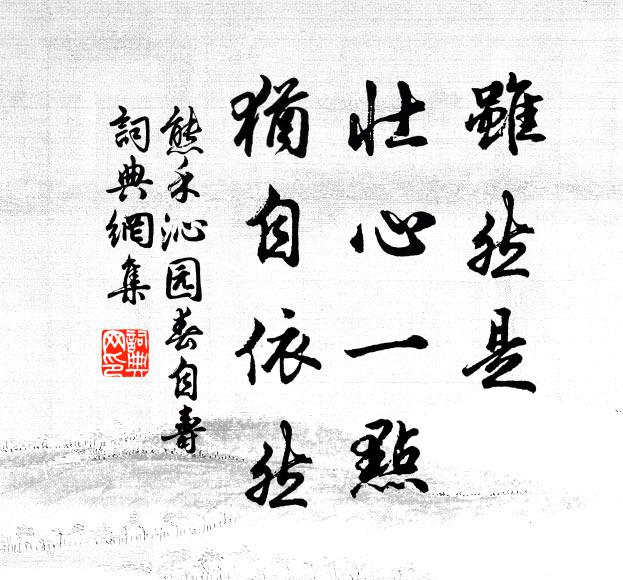 雖然是
壯心一點
猶自依然
熊禾沁园春自壽
詞典網集
詞典
网印